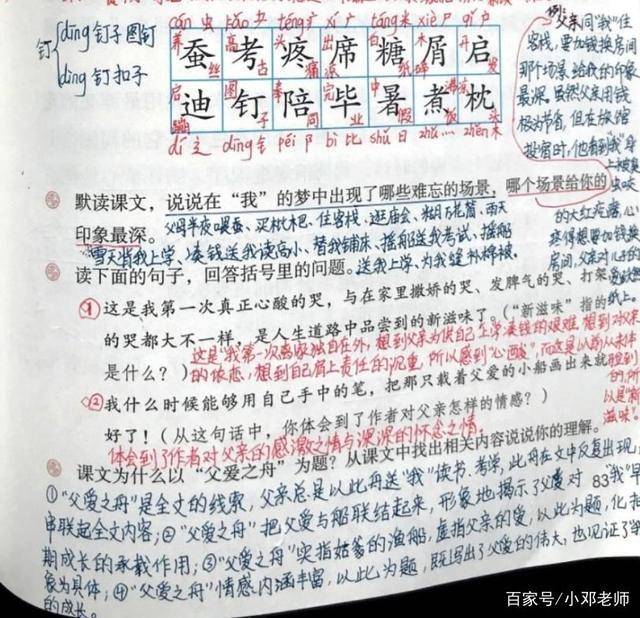 钉{dīng 钉子 图钉
dìng 钉扣子
cán 虫 kǎo 耂 téng 疒 xí 广 táng 米 xiè 尸 qǐ 户
蚕 考 疼 席 糖 屑 启
迪 钉 陪 毕 暑 煮 枕
dí 辶 dīng 钅 péi 阝 bì 比 shǔ 日 zhǔ 灬 zhěn 木
例：父亲同“我”住
客栈，要加钱换房间
那个场景，给我的印象
最深。虽然父亲用钱
极为节省，但在旅馆
投宿时，他看到“我”身
上被臭虫咬
的大红疙瘩，心
疼得想要加钱换
房间，父亲对儿子的
默读课文，说说在“我”的梦中出现了哪些难忘的场景，哪个场景给你的
印象最深。
父母半夜喂蚕、买枇杷、住客栈、逛庙会、独自万花筒、雨天
雪天背我上学、凑钱送我读高小、替我铺床、摇船送我考试、摇船
送我上学、为我缝补棉被。
读下面的句子，回答括号里的问题。
①这是我第一次真正心酸的哭，与在家里撒娇的哭、发脾气的哭、打架
的哭都大不一样，是人生道路中品尝到的新滋味了。（“新滋味”指的
是什么？）
这是“我”第一次离家独自在外，想到父亲为供自己上学凑钱的艰难，想到对父亲
的依恋，想到自己肩上责任的沉重，所以感到“心酸”，而这是以前从未体
验到
的，所
以是“新
滋味”。
②我什么时候能够用自己手中的笔，把那只载着父爱的小船画出来就
好了！（从这句话中，你体会到了作者对父亲怎样的情感？）
体会到了作者对父亲的感激之情与深深的怀念之情。
课文为什么以“父爱之舟”为题？从课文中找出相关内容说说你的理解。
①“父爱之舟”是全文的线索，父亲总是以此舟送“我”读书、考学，此舟在文中反复出现，
83
串联起全文内容；②“父爱之舟”把父爱与船联结起来，形象地揭示了父爱对“我”
期成长的承载作用；③“父爱之舟”实指姑爹的渔船，虚指父亲的爱，以此为题，化
象为具体；④“父爱之舟”情感内涵丰富，以此为题，既写出了父爱的伟大，也见证了
的成长。
百家号/小邓老师